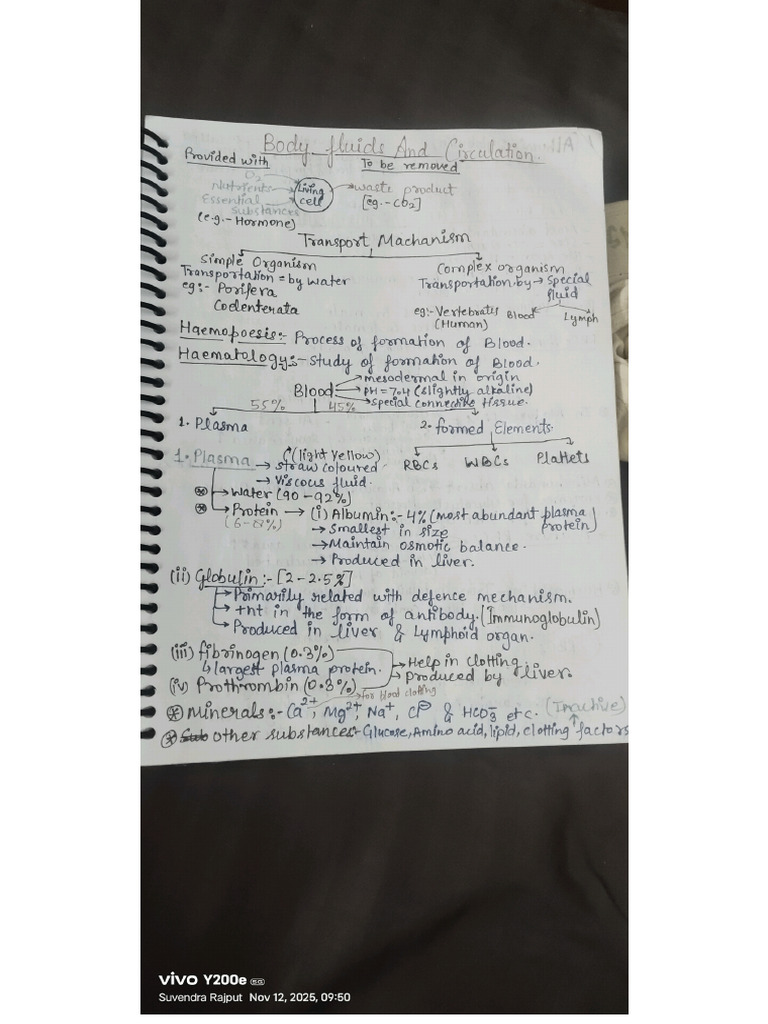 Body fluids And Circulation.
Provided with To be removed
O2
Nutrients
Essential Substances
(e.g.- Hormone)
Living cell
waste product
[eg.- CO2]
Transport Machanism
Simple Organism
Transportation = by water
eg:- Porifera
Coelenterata
Complex organism
Transportation by → Special fluid
eg:- Vertebrates (Human)
Blood Lymph
Haemopoesis:- Process of formation of Blood.
Haematology:- Study of formation of Blood.
Blood
→ mesodermal in origin
→ PH = 7.4 (slightly alkaline)
→ Special connective tissue.
55% 45%
1. Plasma 2. formed Elements.
RBCs WBCs Platlets
1. Plasma → straw coloured (light yellow)
→ Viscous fluid.
⊛ → Water (90-92%)
⊛ → Protein → (i) Albumin:- 4% (most abundant plasma protein)
(6-8%)
→ Smallest in size
→ Maintain osmotic balance.
→ Produced in liver.
(ii) Globulin:- [2-2.5%]
→ Primarily related with defence mechanism.
→ +nt in the form of antibody. (Immunoglobulin)
→ Produced in liver & Lymphoid organ.
(iii) fibrinogen (0.3%)
↳ largest plasma protein.
(iv) Prothrombin (0.3%)
→ Help in clotting
→ Produced by liver.
for blood clotting
⊛ Minerals:- Ca2+, Mg2+, Na+, Cl⊖ & HCO3- etc.
(Inactive)
⊛ other substances:- Glucose, Amino acid, lipid, clotting factors
vivo Y200e 5G
Suvendra Rajput Nov 12, 2025, 09:50